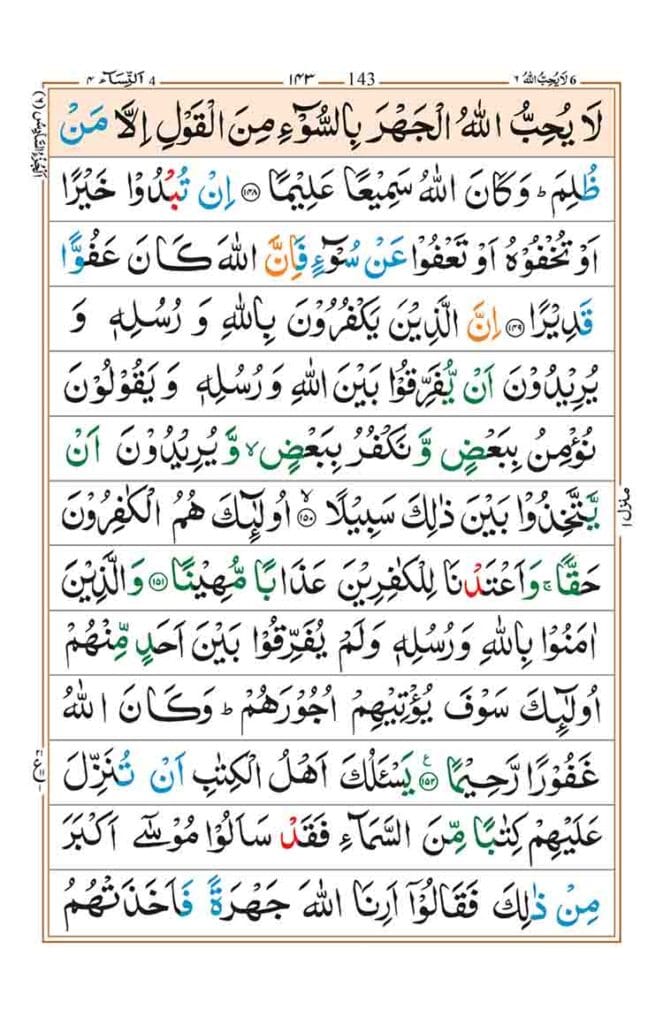 6 لَا يُحِبُّ اللّٰهُ ٦ 143 ١٤٣ 4 اَلنِّسَآء ٤
اَلْجُزْءُ السَّادِسُ (٦)
لَا يُحِبُّ اللّٰهُ الْجَهْرَ بِالسُّوْٓءِ مِنَ الْقَوْلِ اِلَّا مَنْ
ظُلِمَ ؕ وَكَانَ اللّٰهُ سَمِيْعًا عَلِيْمًا ﴿١٤٨﴾ اِنْ تُبْدُوْا خَيْرًا
اَوْ تُخْفُوْهُ اَوْ تَعْفُوْا عَنْ سُوْٓءٍ فَاِنَّ اللّٰهَ كَانَ عَفُوًّا
قَدِيْرًا ﴿١٤٩﴾ اِنَّ الَّذِيْنَ يَكْفُرُوْنَ بِاللّٰهِ وَ رُسُلِهٖ وَ
يُرِيْدُوْنَ اَنْ يُّفَرِّقُوْا بَيْنَ اللّٰهِ وَ رُسُلِهٖ وَ يَقُوْلُوْنَ
نُؤْمِنُ بِبَعْضٍ وَّ نَكْفُرُ بِبَعْضٍ ۙ وَّ يُرِيْدُوْنَ اَنْ
يَّتَّخِذُوْا بَيْنَ ذٰلِكَ سَبِيْلًا ۙ﴿١٥٠﴾ اُولٰٓئِكَ هُمُ الْكٰفِرُوْنَ
حَقًّا ۚ وَاَعْتَدْنَا لِلْكٰفِرِيْنَ عَذَابًا مُّهِيْنًا ﴿١٥١﴾ وَالَّذِيْنَ
اٰمَنُوْا بِاللّٰهِ وَرُسُلِهٖ وَلَمْ يُفَرِّقُوْا بَيْنَ اَحَدٍ مِّنْهُمْ
اُولٰٓئِكَ سَوْفَ يُؤْتِيْهِمْ اُجُوْرَهُمْ ؕ وَكَانَ اللّٰهُ
غَفُوْرًا رَّحِيْمًا ﴿١٥٢﴾ ع يَسْـَٔلُكَ اَهْلُ الْكِتٰبِ اَنْ تُنَزِّلَ
عَلَيْهِمْ كِتٰبًا مِّنَ السَّمَآءِ فَقَدْ سَاَلُوْا مُوْسٰٓى اَكْبَرَ
مِنْ ذٰلِكَ فَقَالُوْٓا اَرِنَا اللّٰهَ جَهْرَةً فَاَخَذَتْهُمُ
منزل ١